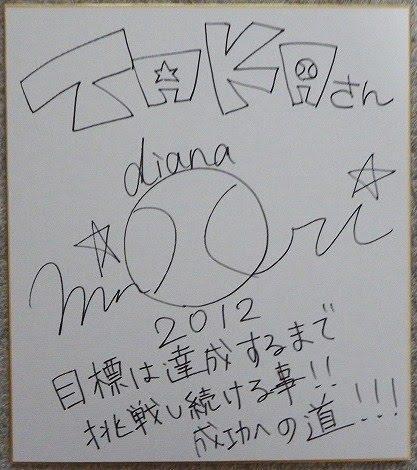 TAKAさん
diana
2012
目標は達成するまで
挑戦し続ける事!!
成功への道!!!